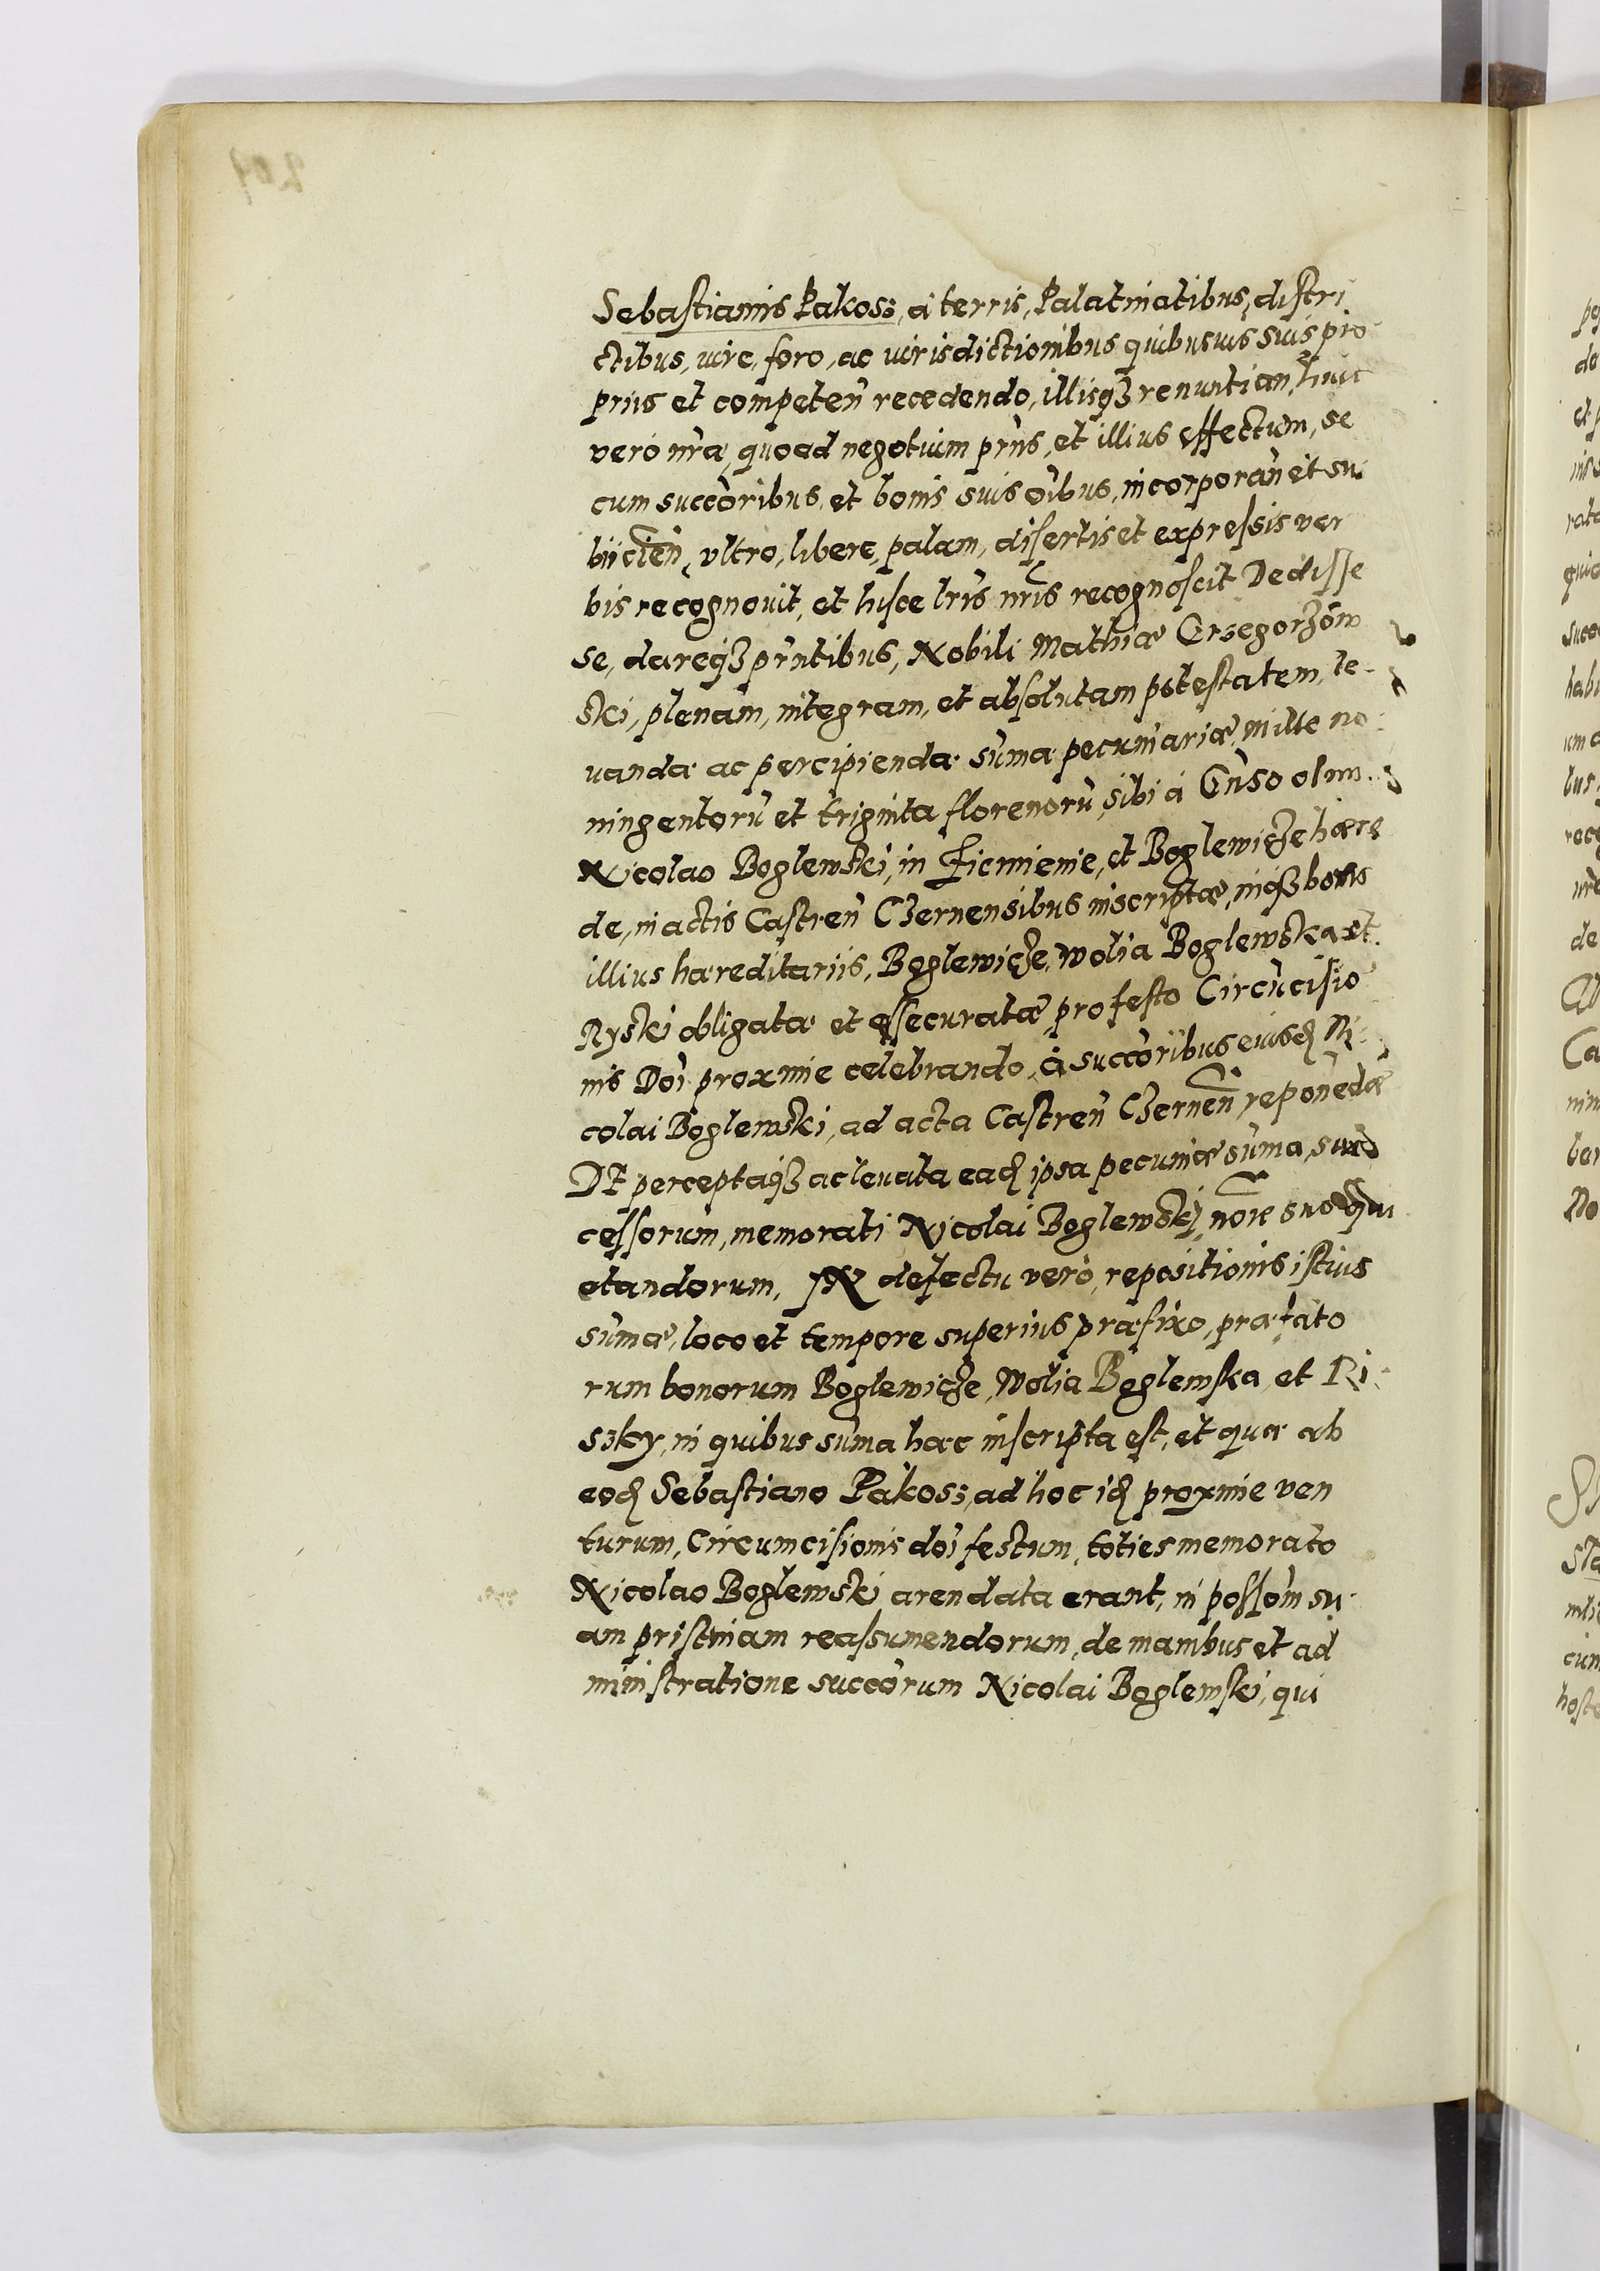 Sebastianus Pakosz, a terris, Palatinatibus, distri
ctibus, iure, foro, ac iurisdictionibus quibusuis suis pro
priis et competen̄ recedendo, illisqꝫ renuntian, huic
vero nr̄a, quoad negotium pr̄ns, et illius effectum, se
cum succōribus, et bonis suis oībus, incorporan̄ et su
biicien̄, vltro, libere, palam, disertis et expressis ver
bis recognouit, et hisce lr̄is nr̄is recognoscit Dedisse
se, dareqꝫ pr̄ntibus, Nobili Mathiæ Grzegorzow
ski, plenam, integram, et absolutam potestatem, le
uandæ ac percipiendæ sum̄æ pecuniariæ, mille no
ningentorū et triginta florenorū, sibi á Gn̄so olim
Nicolao Boglewski, in Ficinienie, et Boglewicze hærę
de, in actis Castren̄ Czernensibus inscriptæ, inqꝫ bonis
illius hæreditariis, Boglewicze, Wolia Boglewska et
Ryski obligatæ et assecuratæ, pro festo Circūcisio
nis Dn̄i proxime celebrando, á succōribus eiusdꝫ Ni
colai Boglewski, ad acta Castren̄ Czernen̄ reponēdæ
DE perceptaqꝫ ac leuata eadꝫ ipsa pecuniæ sum̄a, suc
cessorum, memorati Nicolai Boglewski, noīe suo qui
etandorum, IN defectu vero, repositionis istius
sum̄æ, loco et tempore superius præfixo, præfato
rum bonorum Boglewicze, Wolia Boglewska, et Ri
szky, in quibus sum̄a hæc inscripta est, et quæ ab
eodꝫ Sebastiano Pakosz, ad hoc idꝫ proxime ven
turum, Circumcisionis dn̄i festum, toties memorato
Nicolao Boglewski arendata erant, in possōm su
am pristinam reassumendorum, de manibus et ad
ministratione succōrum Nicolai Boglewski, qui